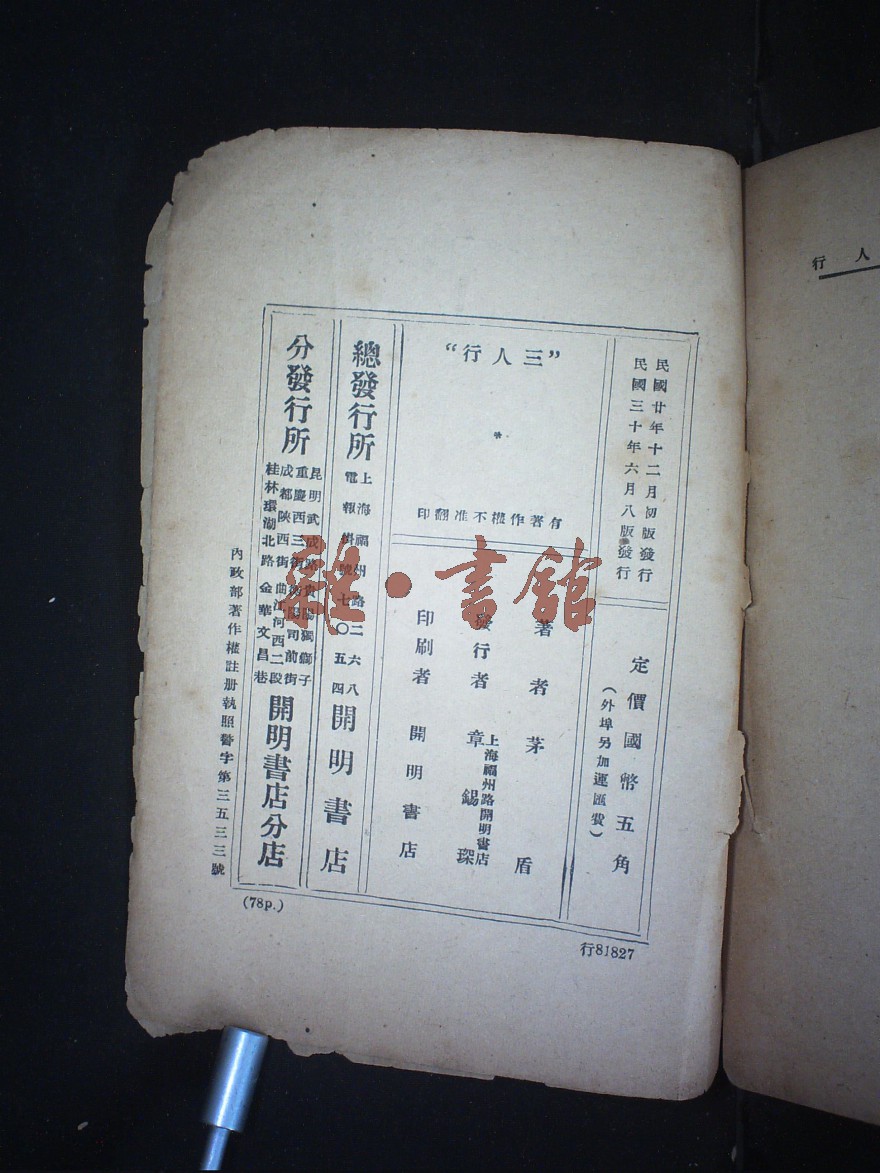 民國廿年十二月初版發行
民國三十年六月八版發行
定價國幣五角
(外埠另加運匯費)
“三人行”
*
有著作權不准翻印
著者 茅盾
發行者 章錫琛
上海福州路開明書店
印刷者 開明書店
總發行所
上海福州路二六八
電報掛號七〇五四
開明書店
分發行所
昆明武成路 貴陽獅獅子
重慶西三街 衡陽司前街
成都陝西街 曲江河西二段
桂林環湖北路 金華文昌巷
開明書店分店
內政部著作權註冊執照警字第三五三三號
(78p.)
行81827
人行
雜·書館